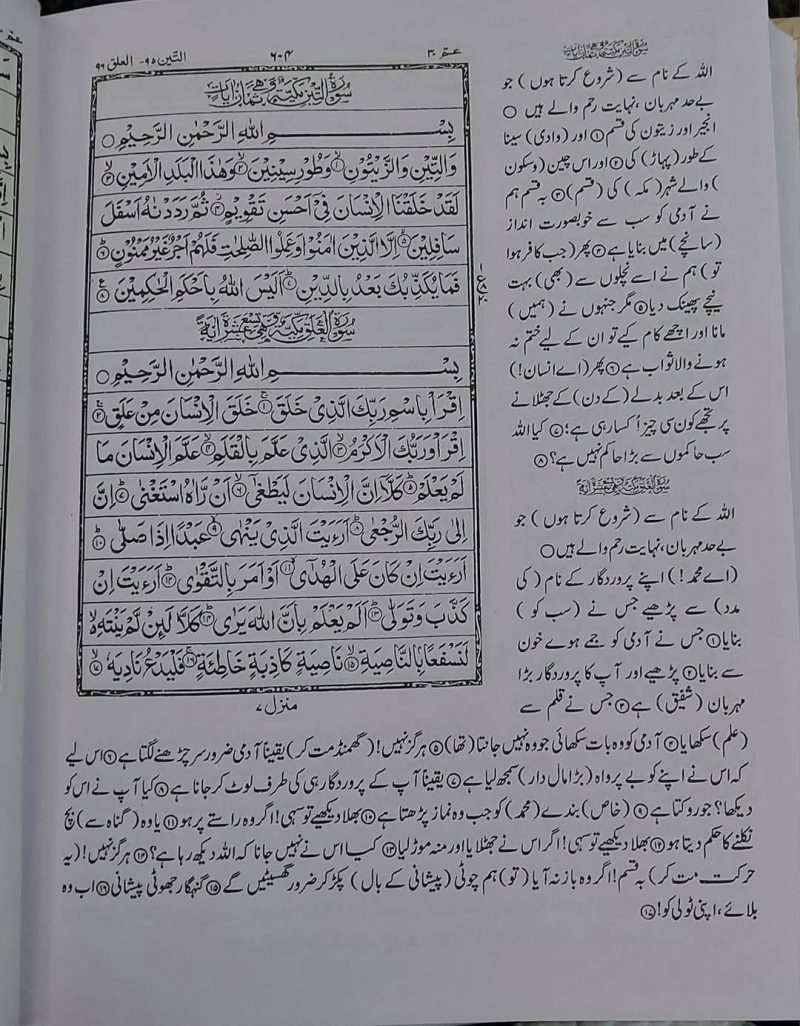 التّين ۹۵۔ العلق ۹۶
۶۰۴
عمّ ۳۰
سُوْرَةُ التِّيْنِ مَكِّيَّةٌ وَّهِيَ ثَمَانُ اٰيَاتٍ
بِسْمِ اللهِ الرَّحْمٰنِ الرَّحِيْمِ ○
وَالتِّيْنِ وَالزَّيْتُوْنِ ۱ وَطُوْرِ سِيْنِيْنَ ۲ وَهٰذَا الْبَلَدِ الْاَمِيْنِ ۳
لَقَدْ خَلَقْنَا الْاِنْسَانَ فِيْٓ اَحْسَنِ تَقْوِيْمٍ ۴ ثُمَّ رَدَدْنٰهُ اَسْفَلَ
سَافِلِيْنَ ۵ اِلَّا الَّذِيْنَ اٰمَنُوْا وَعَمِلُوا الصّٰلِحٰتِ فَلَهُمْ اَجْرٌ غَيْرُ مَمْنُوْنٍ ۶
فَمَا يُكَذِّبُكَ بَعْدُ بِالدِّيْنِ ۷ اَلَيْسَ اللهُ بِاَحْكَمِ الْحٰكِمِيْنَ ۸
سُوْرَةُ الْعَلَقِ مَكِّيَّةٌ وَّهِيَ تِسْعَ عَشَرَةَ اٰيَةً
بِسْمِ اللهِ الرَّحْمٰنِ الرَّحِيْمِ ○
اِقْرَاْ بِاسْمِ رَبِّكَ الَّذِيْ خَلَقَ ۱ خَلَقَ الْاِنْسَانَ مِنْ عَلَقٍ ۲
اِقْرَاْ وَرَبُّكَ الْاَكْرَمُ ۳ الَّذِيْ عَلَّمَ بِالْقَلَمِ ۴ عَلَّمَ الْاِنْسَانَ مَا
لَمْ يَعْلَمْ ۵ كَلَّآ اِنَّ الْاِنْسَانَ لَيَطْغٰٓى ۶ اَنْ رَّاٰهُ اسْتَغْنٰى ۷ اِنَّ
اِلٰى رَبِّكَ الرُّجْعٰى ۸ اَرَءَيْتَ الَّذِيْ يَنْهٰى ۹ عَبْدًا اِذَا صَلّٰى ۱۰
اَرَءَيْتَ اِنْ كَانَ عَلَى الْهُدٰٓى ۱۱ اَوْ اَمَرَ بِالتَّقْوٰى ۱۲ اَرَءَيْتَ اِنْ
كَذَّبَ وَتَوَلّٰى ۱۳ اَلَمْ يَعْلَمْ بِاَنَّ اللهَ يَرٰى ۱۴ كَلَّا لَئِنْ لَّمْ يَنْتَهِ ۙ
لَنَسْفَعًا بِالنَّاصِيَةِ ۱۵ نَاصِيَةٍ كَاذِبَةٍ خَاطِئَةٍ ۱۶ فَلْيَدْعُ نَادِيَهٗ ۱۷
منزل ۷
سُوْرَةُ التِّيْنِ مَكِّيَّةٌ وَّهِيَ ثَمَانُ اٰيَاتٍ
اللہ کے نام سے (شروع کرتا ہوں) جو
بےحد مہربان، نہایت رحم والے ہیں ○
انجیر اور زیتون کی قسم ۱ اور (وادی) سینا
کے طور (پہاڑ) کی ۲ اور اس چین (وسکون
) والے شہر (مکہ) کی (قسم) ۳ بہ قسم ہم
نے آدمی کو سب سے خوبصورت انداز
(سانچے) میں بنایا ہے ۴ پھر (جب کافر ہوا
تو) ہم نے اسے نچلوں سے (بھی) بہت
نیچے پھینک دیا ۵ مگر جنہوں نے (ہمیں)
مانا اور اچھے کام کیے تو ان کے لیے ختم نہ
ہونے والا ثواب ہے ۶ پھر (اے انسان!)
اس کے بعد بدلے (کے دن) کے جھٹلانے
پر تجھے کون سی چیز اُکسا رہی ہے؛ ۷ کیا اللہ
سب حاکموں سے بڑا حاکم نہیں ہے؟ ۸
سُوْرَةُ الْعَلَقِ مَكِّيَّةٌ وَّهِيَ تِسْعَ عَشَرَةَ اٰيَةً
اللہ کے نام سے (شروع کرتا ہوں) جو
بےحد مہربان، نہایت رحم والے ہیں ○
(اے محمد!) اپنے پروردگار کے نام (کی
مدد) سے پڑھیے جس نے (سب کو)
بنایا ۱ جس نے آدمی کو جمے ہوے خون
سے بنایا ۲ پڑھیے اور آپ کا پروردگار بڑا
مہربان (شفیق) ہے ۳ جس نے قلم سے
(علم) سکھایا ۴ آدمی کو وہ بات سکھائی جو وہ نہیں جانتا (تھا) ۵ ہرگز نہیں! (گھمنڈ مت کر) یقیناً آدمی ضرور سر چڑھنے لگتا ہے ۶ اس لیے
کہ اس نے اپنے کو بے پرواہ (بڑا مال دار) سمجھ لیا ہے ۷ یقیناً آپ کے پروردگار ہی کی طرف لوٹ کر جانا ہے ۸ کیا آپ نے اس کو
دیکھا؟ جو روکتا ہے ۹ (خاص) بندے (محمد) کو جب وہ نماز پڑھتا ہے ۱۰ بھلا دیکھیے تو سہی! اگر وہ راستے پر ہو ۱۱ یا وہ (گناہ سے) بچ
نکلنے کا حکم دیتا ہو ۱۲ بھلا دیکھیے تو سہی! اگر اس نے جھٹلایا اور منہ موڑ لیا ۱۳ کیا اس نے نہیں جانا کہ اللہ دیکھ رہا ہے؟ ۱۴ ہرگز نہیں! (یہ
حرکت مت کر) بہ قسم! اگر وہ باز نہ آیا (تو) ہم چوٹی (پیشانی کے بال) پکڑ کر ضرور گھسیٹیں گے ۱۵ گنہگار جھوٹی پیشانی ۱۶ اب وہ
بلائے، اپنی ٹولی کو! ۱۷